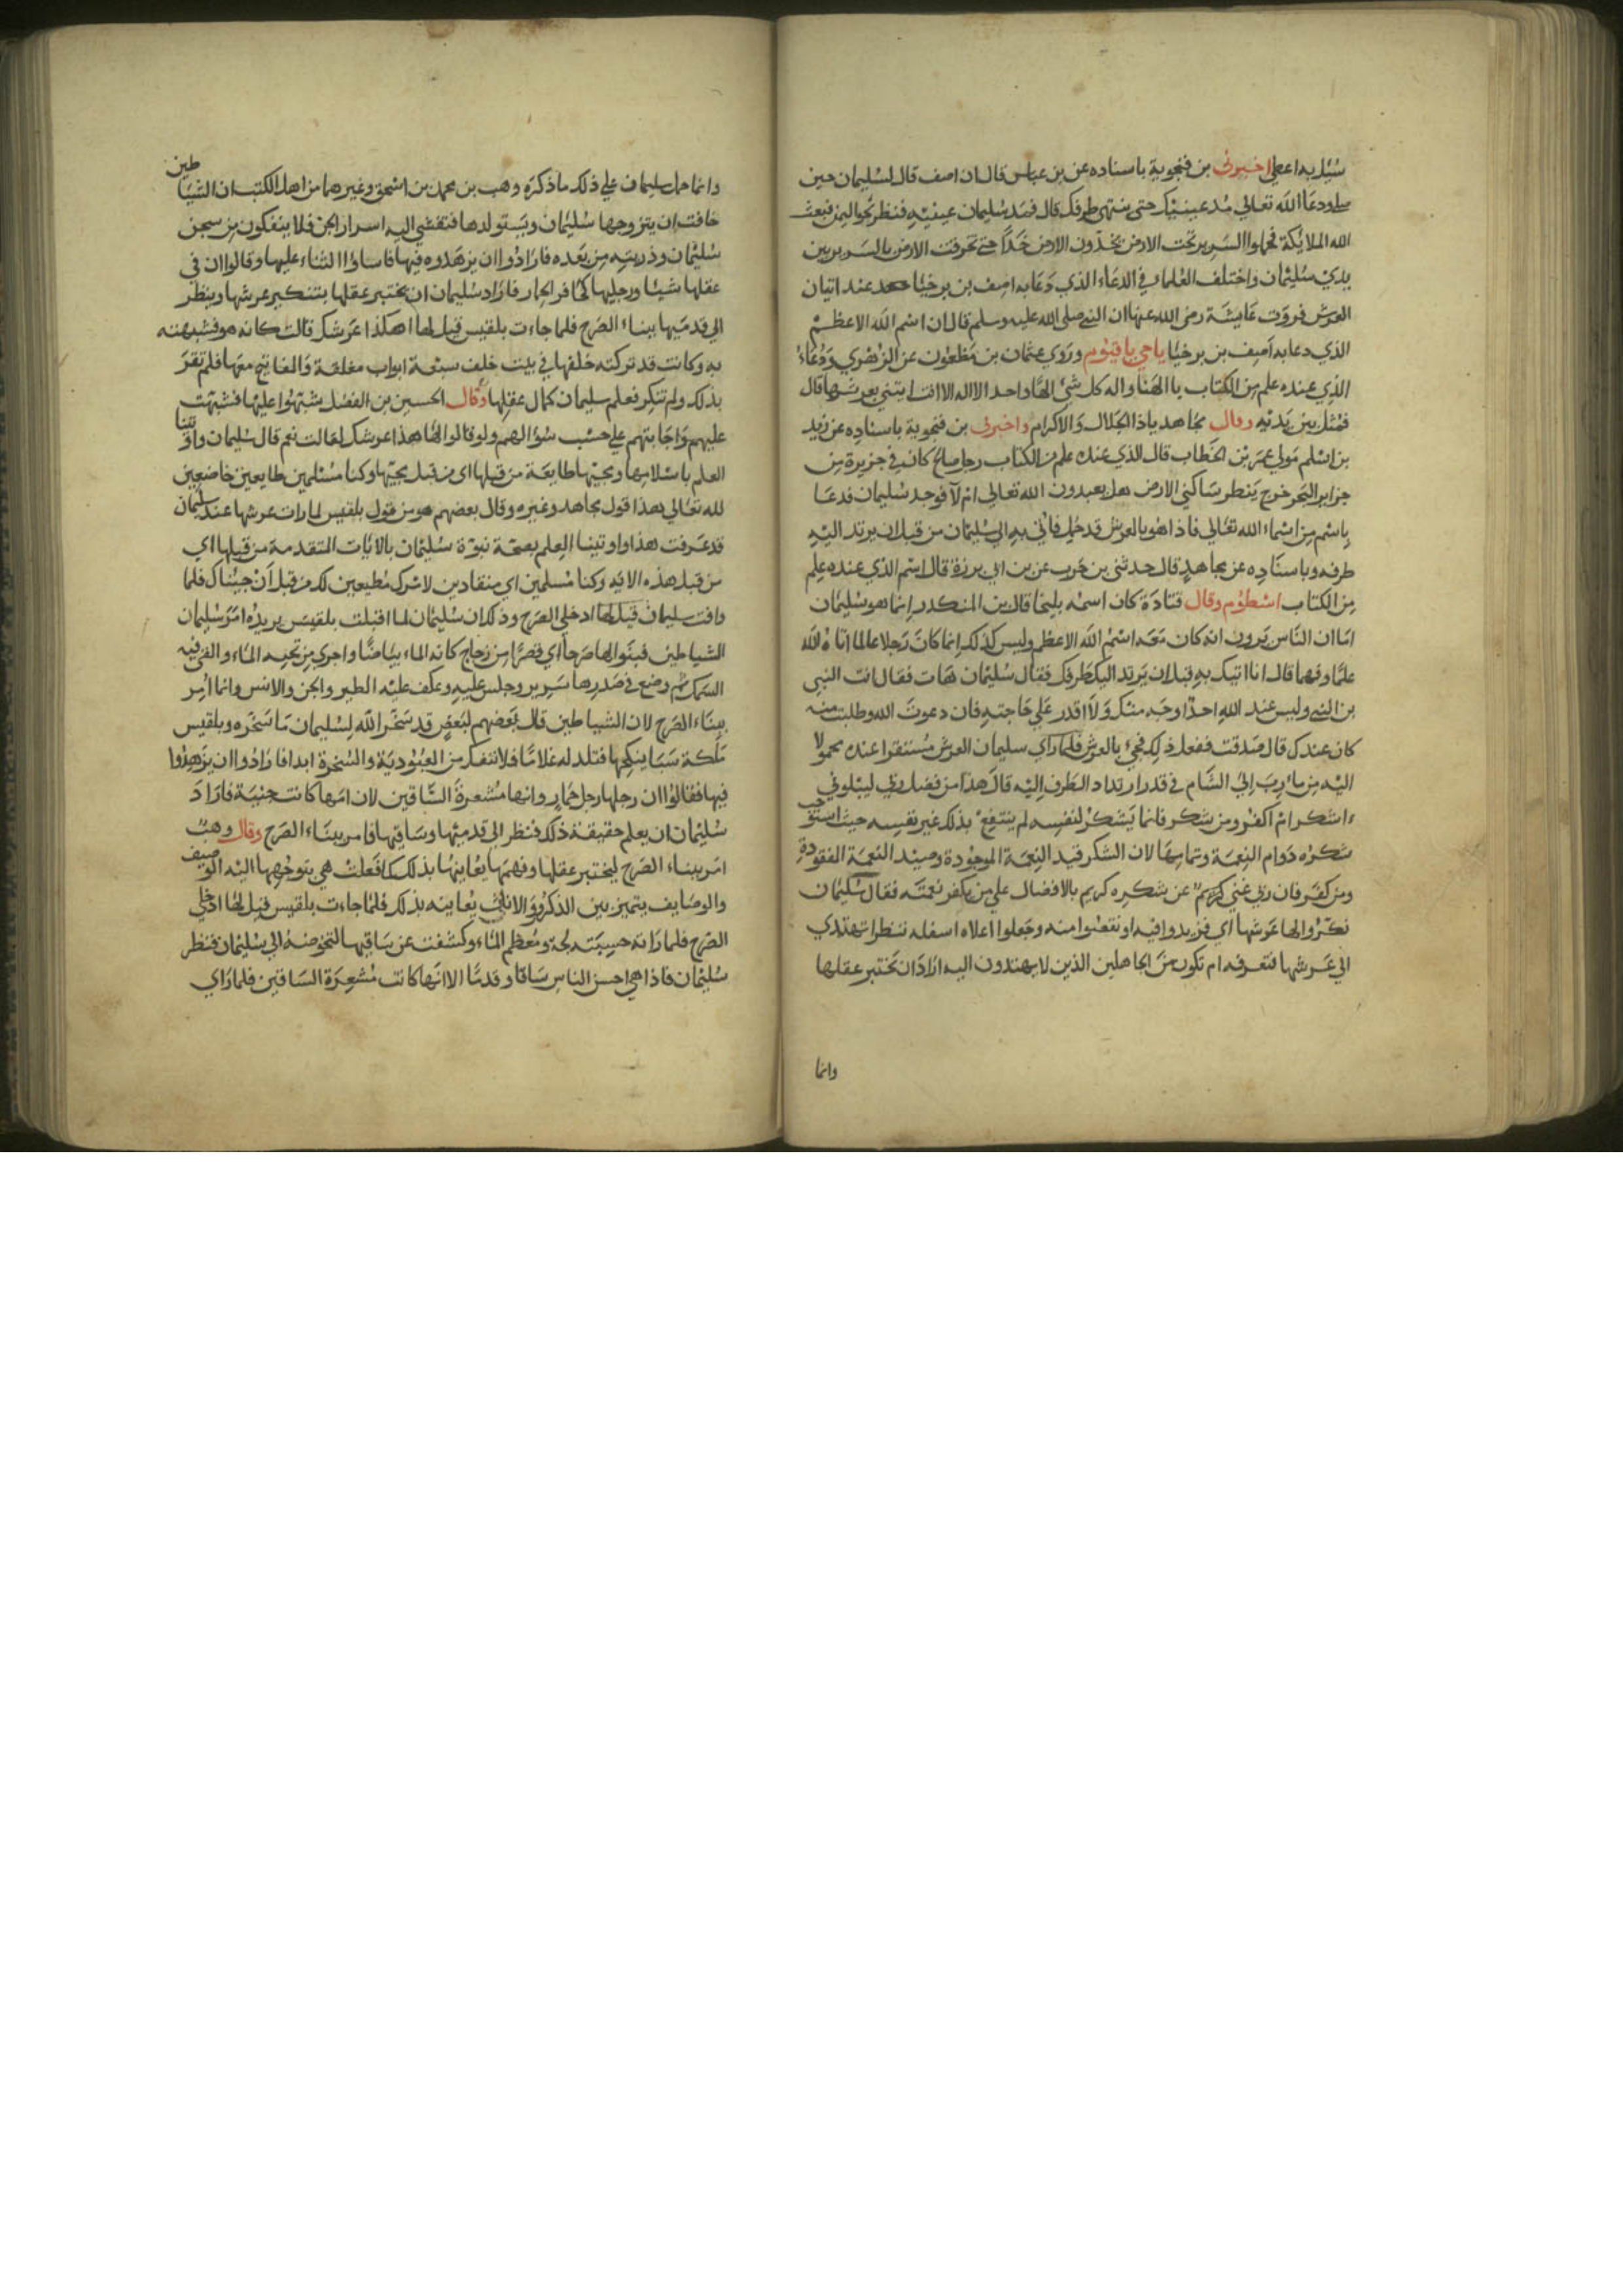 سئل به اعطي اخبرني بن فنجوية باسناده عن بن عباس قال ان اصف قال لسليمان حين
صلي ودعا الله تعالي مد عينيك حتي ينتهي طرفك قال فمد سليمان عينيه فنظر نحو اليمن فبعث
الله الملايكة فحملوا السرير تحت الارض يخدون الارض خدا حتي تخرقت الارض بالسرير بين
يدي سليمان واختلف العلما في الدعاء الذي دعا به اصف بن برخيا عند اتيان
العرش فروت عايشة رضي الله عنها ان النبي صلي الله عليه وسلم قال ان اسم الله الاعظم
الذي دعا به اصف بن برخيا ياحي ياقيوم وروي عثمان بن مظعون عن الزهري ودعاء
الذي عنده علم من الكتاب يا الهنا واله كل شئ الها واحدا لا اله الا انت ايتني بعرشها قال
فمثل بين يديه وقال مجاهد ياذا الجلال والاكرام واخبرني بن فنجوية باسناده عن زيد
بن اسلم مولي عمر بن الخطاب قال الذي عنده علم من الكتاب رجل صالح كان في جزيرة من
جزاير البحر خرج ينظر ساكني الارض هل يعبدون الله تعالي ام لا فوجد سليمان فدعا
باسم من اسماء الله تعالي فاذا هو بالعرش قد حمل فاتي به الي سليمان من قبل ان يرتد اليه
طرفه وباسناده عن مجاهد قال حدثني بن حرب عن بن ابي برزة قال اسم الذي عنده علم
من الكتاب اسطوم وقال قتادة كان اسمه بليخا قال بن المنكدر انما هو سليمان
اما ان الناس يرون انه كان معه اسم الله الاعظم وليس كذلك انما كان رجلا عالما اتاه الله
علما وفهما قال انا اتيك به قبل ان يرتد اليك طرفك فقال سليمان هات فقال انت النبي
بن النبي وليس عند الله احدا وجه منك ولا اقدر علي حاجته فان دعوت الله وطلبت منه
كان عندك قال صدقت ففعل ذلك فجيء بالعرش فلما راي سليمان العرش مستقرا عنده محمولا
اليه من مارب الي الشام في قدر ارتداد الطرف اليه قال هذا من فضل ربي ليبلوني
ءاشكر ام اكفر ومن شكر فانما يشكر لنفسه لم ينتفع بذلك غير نفسه حيث استوجب
شكره دوام النعمة وتمامها لان الشكر قيد النعمة الموجودة وصيد النعمة المفقودة
ومن كفر فان ربي غني كريم عن شكره كريم بالافضال علي من يكفر نعمته فقال سليمان
نكروا لها عرشها اي فزيدوا فيه او نقصوا منه وجعلوا اعلاه اسفله ننظر اتهتدي
الي عرشها فتعرفه ام تكون من الجاهلين الذين لا يهتدون اليه اراد ان يختبر عقلها
وانما
وانما حمل سليمان علي ذلك ما ذكره وهب بن محمد بن اسحق وغيرهما من اهل الكتب ان الشياطين
خافت ان يتزوجها سليمان ويستولدها فتفشي اليه اسرار الجن فلا ينفكون من سجن
سليمان وذريته من بعده فارادوا ان يزهدوه فيها فاساوا الثناء عليها وقالوا ان في
عقلها شيئا ورجليها كحافر الحمار فاراد سليمان ان يختبر عقلها بتنكير عرشها وينظر
الي قدميها ببناء الصرح فلما جاءت بلقيس قيل لها اهكذا عرشك قالت كانه هو فشبهته
به وكانت قد تركته خلفها في بيت خلف سبعة ابواب مغلقة والمفاتيح معها فلم تقر
بذلك ولم تنكر فعلم سليمان كمال عقلها وقال الحسين بن الفضل يشبهوا عليها فشبهت
عليهم واجابتهم علي حسب سؤالهم ولو قالوا لها هذا عرشك لقالت نعم قال سليمان واوتينا
العلم باسلامها ومجيها طايعة من قبلها اي من قبل مجيها وكنا مسلمين طايعين خاضعين
لله تعالي هذا قول مجاهد وغيره وقال بعضهم هو من قول بلقيس لما رات عرشها عند سليمان
قد عرفت هذا واوتينا العلم بصحة نبوة سليمان بالايات المتقدمة من قبلها اي
من قبل هذه الايه وكنا مسلمين اي منقادين لامرك مطيعين لك من قبل ان جيناك فلما
وافت سليمان قيل لها ادخلي الصرح وذلك ان سليمان لما اقبلت بلقيس يريده امر سليمان
الشياطين فبنوا لها صرحا اي قصرا من زجاج كانه الماء بياضا واجري من تحته الماء والقي فيه
السمك ثم وضع في صدرها سرير وجلس عليه وعكف عليه الطير والجن والانس وانما امر
ببناء الصرح لان الشياطين قال بعضهم لبعض قد سخر الله لسليمان ما سخره وبلقيس
ملكة سبا ينكحها فتلد له غلاما فلا ننفك من العبودية والسخرة ابدا فارادوا ان يزهدوا
فيها فقالوا ان رجلها رجل حمار وانها مشعرة الساقين لان امها كانت جنية فاراد
سليمان ان يعلم حقيقة ذلك فنظر الي قدميها وساقيها فامر ببناء الصرح وقال وهب
امر ببناء الصرح ليختبر عقلها وفهمها يعاينها بذلك كما فعلت هي بتوجيهها اليه الوصيف
والوصايف يتميز بين الذكور والاناث يعاينه بذلك فلما جاءت بلقيس قيل لها ادخلي
الصرح فلما راته حسبته لجة ومعظم الماء وكشفت عن ساقيها لتخوضه الي سليمان فنظر
سليمان فاذا هي احسن الناس ساقا وقدما الا انها كانت مشعرة الساقين فلما راي